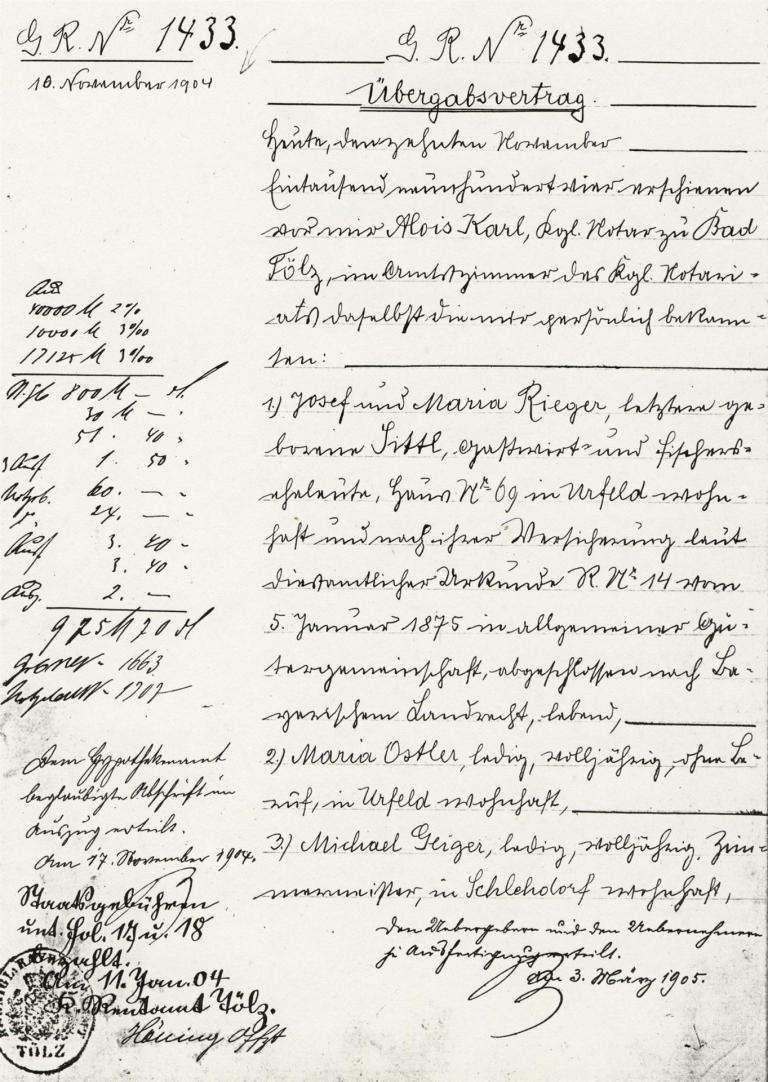 G. R. Nr 1433.
10. November 1904
Aus
40000 M 2‰
10000 M 3‰
17125 M 3‰
800 M — ₰
30 M — "
51. 40 "
1. 50 "
60. — "
24. — "
3. 40 "
3. 40 "
2. —
925 M 70 ₰
1663
1707
Dem Hypothekenamt
beglaubigte Abschrift im
Auszug erteilt.
Am 17. November 1904.
Staatsgebühren
unt. Fol. 17 u. 18
bezahlt.
Am 11. Jan. 04
K. Rentamt Tölz.
TÖLZ
G. R. Nr 1433.
Übergabsvertrag.
Heute, den zehnten November
Eintausend neunhundert vier erschienen
vor mir Alois Karl, Kgl. Notar zu Bad
Tölz, im Amtszimmer des Kgl. Notari-
ats daselbst die mir persönlich bekann-
ten:
1.) Josef und Maria Rieger, letztere ge-
borene Sittl, Gastwirt- und Fischers-
eheleute, Haus Nr 69 in Urfeld wohn-
haft und nach ihrer Versicherung laut
diesamtlicher Urkunde R. Nr 14 vom
5. Januar 1875 in allgemeiner Gü-
tergemeinschaft, abgeschlossen nach Ba-
yerischem Landrecht, lebend,
2.) Maria Ostler, ledig, volljährig, ohne Be-
ruf, in Urfeld wohnhaft,
3.) Michael Geiger, ledig, volljährig, Zim-
mermeister, in Schlehdorf wohnhaft,
Den Uebergebern und den Uebernehmern
je Ausfertigung erteilt.
Am 3. März 1905.